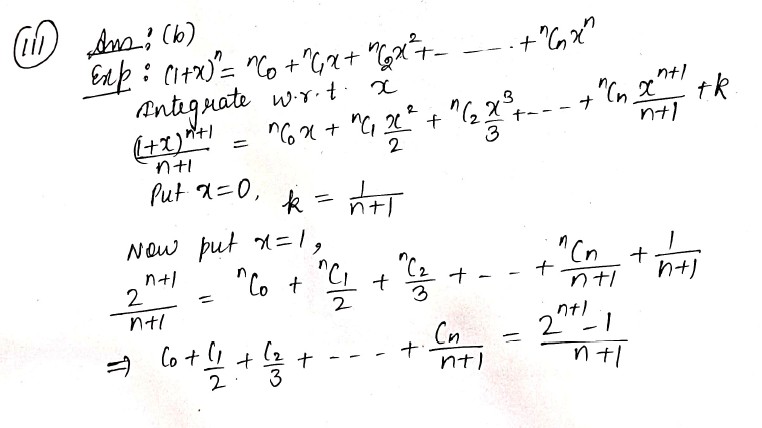 (iii) Ans: (b)
Exp: (1+x)^n = ^nC_0 + ^nC_1 x + ^nC_2 x^2 + - - - . + ^nC_n x^n
Integrate w.r.t. x
(1+x)^{n+1}/n+1 = ^nC_0 x + ^nC_1 x^2/2 + ^nC_2 x^3/3 + - - - + ^nC_n x^{n+1}/n+1 + k
Put x=0, k = 1/n+1
Now put x=1,
2^{n+1}/n+1 = ^nC_0 + ^nC_1/2 + ^nC_2/3 + - - + ^nC_n/n+1 + 1/n+1
⇒ C_0 + C_1/2 + C_2/3 + - - - + C_n/n+1 = 2^{n+1}-1/n+1